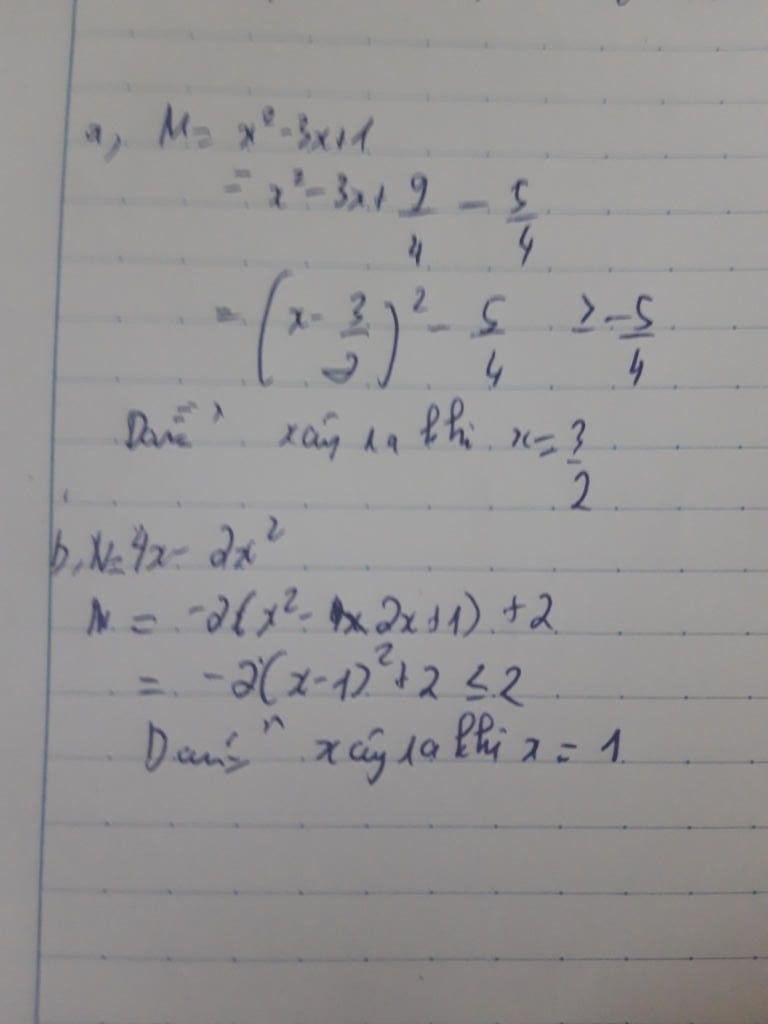 a, M = x² - 3x + 1
= x² - 3x + 9/4 - 5/4
= (x - 3/2)² - 5/4 ≥ -5/4
Dấu "=" xảy ra khi x = 3/2
b, N = 4x - 2x²
N = -2(x² - 2x + 1) + 2
= -2(x - 1)² + 2 ≤ 2
Dấu "=" xảy ra khi x = 1